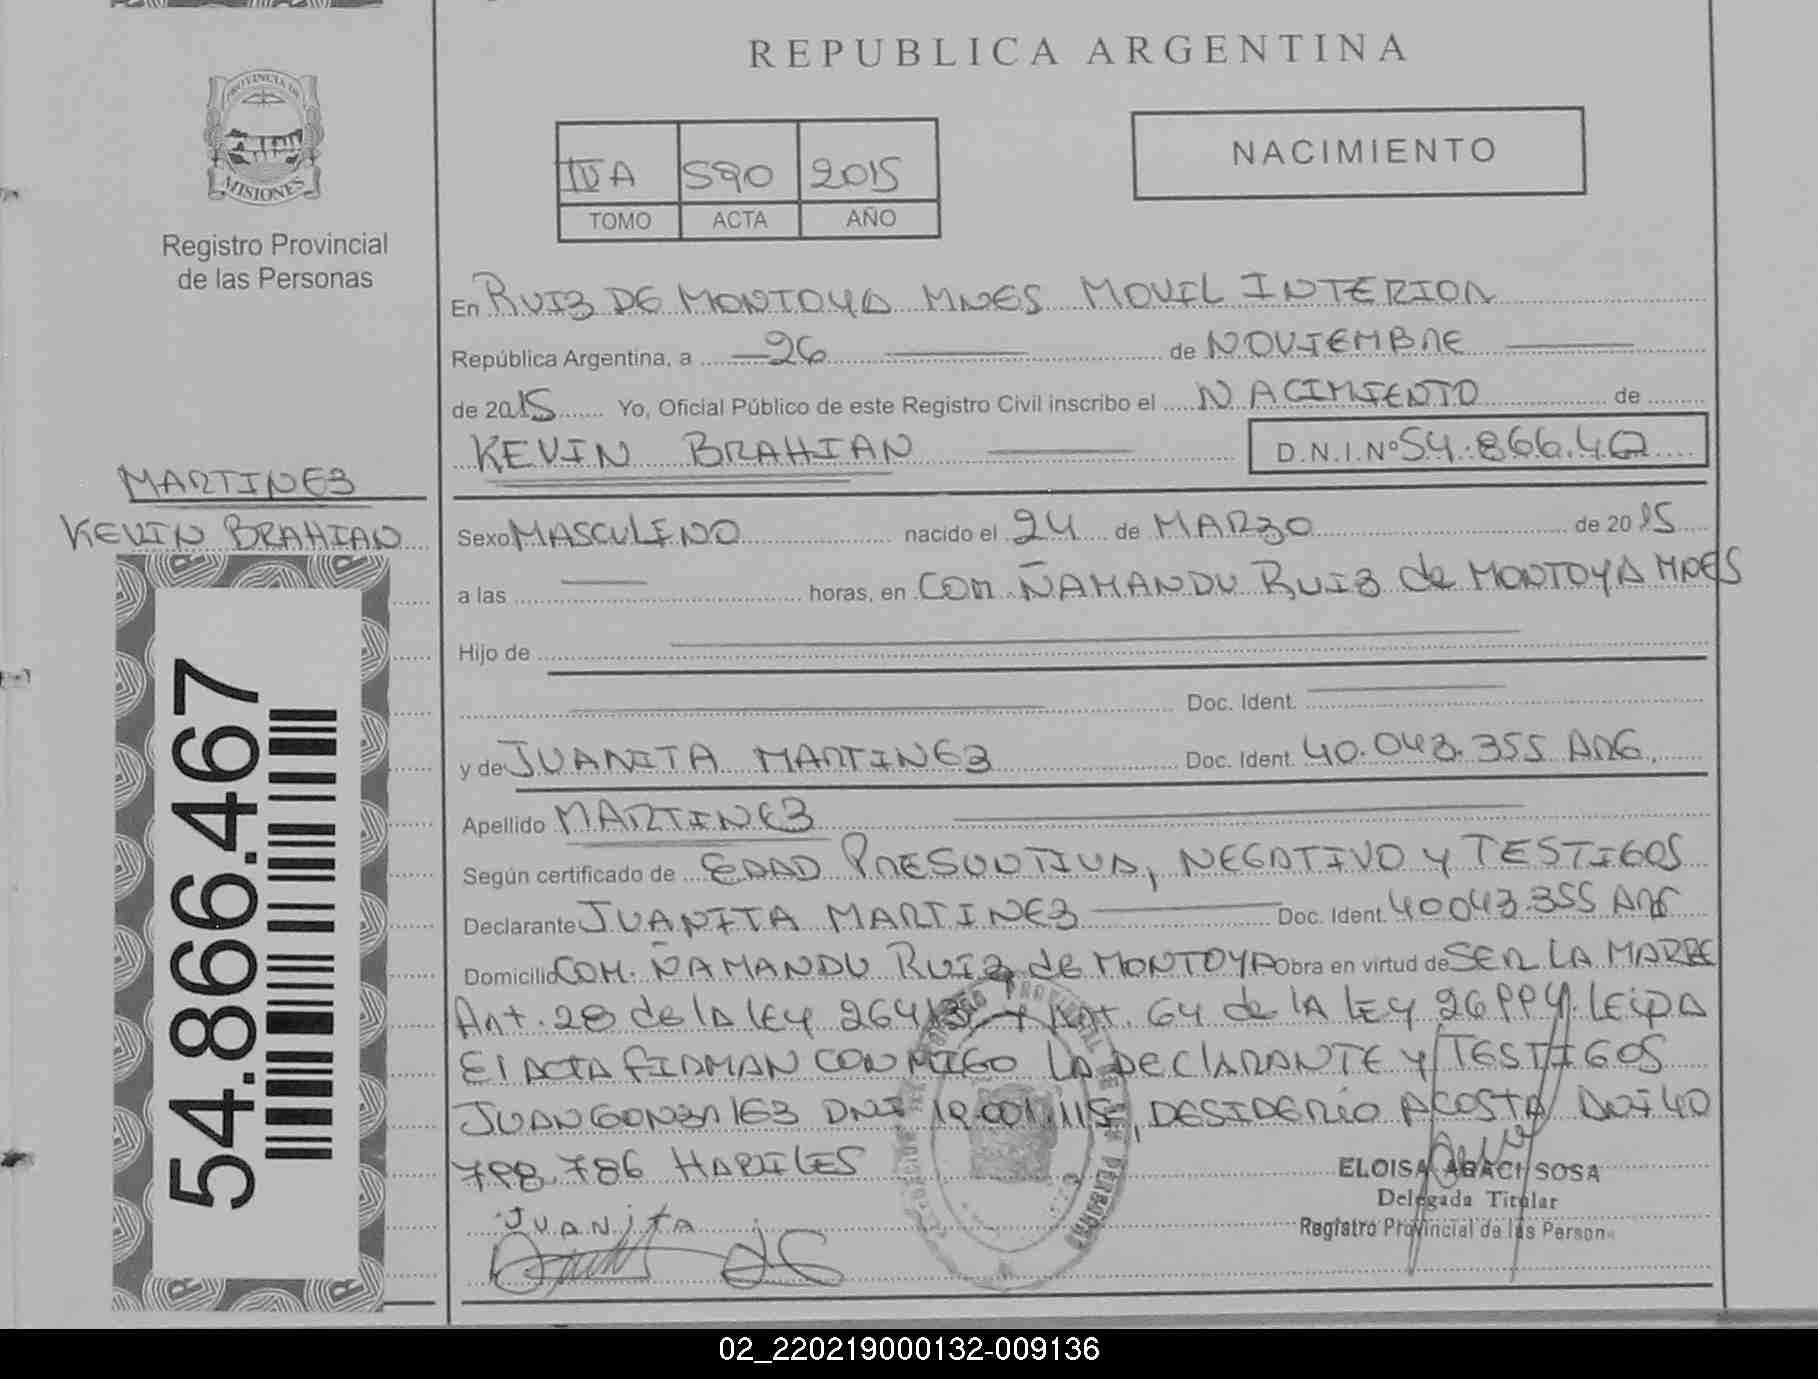 REPUBLICA ARGENTINA
PROVINCIA DE
MISIONES
Registro Provincial
de las Personas
IVA 590 2015
TOMO ACTA AÑO
NACIMIENTO
En RUIZ DE MONTOYA MNES MOVIL INTERIOR
República Argentina, a 26 de NOVIEMBRE
de 2015 Yo, Oficial Público de este Registro Civil inscribo el NACIMIENTO de
KEVIN BRAHIAN D.N.I.Nº 54.866.467
MARTINEZ
KEVIN BRAHIAN
54.866.467
Sexo MASCULINO nacido el 24 de MARZO de 2015
a las horas, en COM. ÑAMANDU RUIZ de MONTOYA MNES
Hijo de
Doc. Ident.
y de JUANITA MARTINEZ Doc. Ident. 40.043.355 ARG.
Apellido MARTINEZ
Según certificado de EDAD PRESUNTIVA, NEGATIVO Y TESTIGOS
Declarante JUANITA MARTINEZ Doc. Ident. 40043.355 ARG
Domicilio COM. ÑAMANDU RUIZ de MONTOYA Obra en virtud de SER LA MADRE
Art. 28 de la LEY 26413 Y Art. 64 de la LEY 26994. LEIDA
El ACTA FIRMAN CONMIGO LA DEClARANTE Y TESTIGOS
JUAN GONZAlEZ DNI 19.001.115, DESIDERIO ACOSTA DNI 40
798.786 HABILES
JUANITA
ELOISA ABACI SOSA
Delegada Titular
Registro Provincial de las Person
02_220219000132-009136